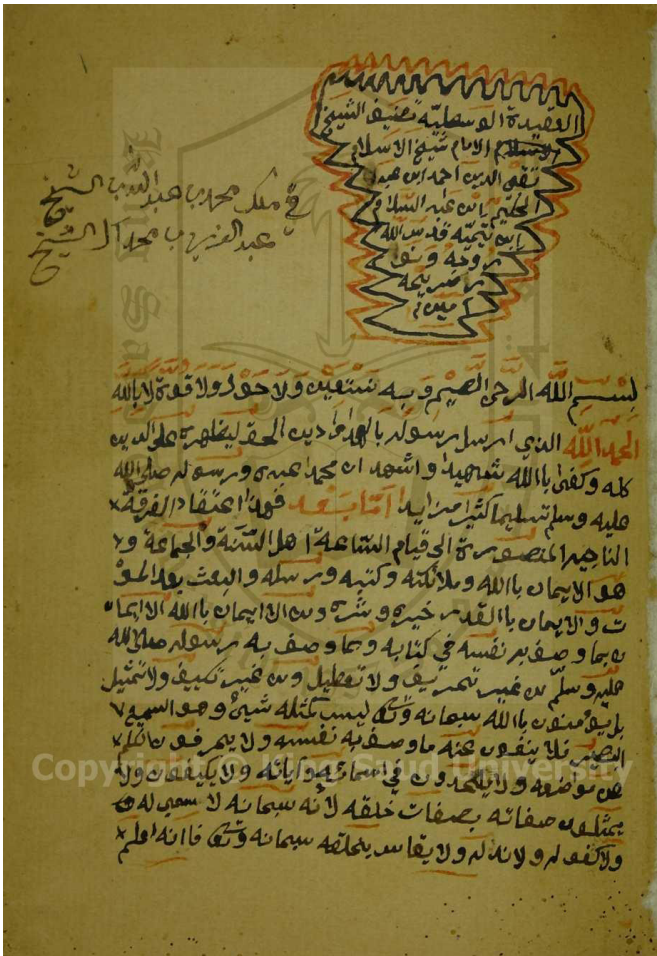 العقيدة الوسطية تصنيف الشيخ
الامام شيخ الاسلام
تقي الدين احمد ابن عبد
الحليم ابن عبد السلام
ابن تيميه قدس الله
روحه ونور
ضريحه
امين
في ملك محمد بن عبد اللطيف الشيخ
عبد العزيز بن محمد آل الشيخ
بسم الله الرحمن الرحيم وبه نستعين ولا حول ولا قوة الا بالله
الحمد لله الذي ارسل رسوله بالهدى ودين الحق ليظهره على الدين
كله وكفى باالله شهيدا واشهد ان محمدا عبده ورسوله صلى الله
عليه وسلم تسليما كثيرا مزايدا اما بعد فهذا اعتقاد الفرقة
الناجيه المنصورة الى قيام الساعة اهل السنة والجماعة و
هو الايمان باالله وملائكته وكتبه ورسله والبعث بعد المو
ت والايمان باالقدر خيره وشره ومن الايمان باالله الايما
ن بما وصف به نفسه في كتابه وبما وصف به رسوله صلى الله
عليه وسلم من غير تحريف ولا تعطيل ومن غير تكييف ولا تمثيل
بل يؤمنون باالله سبحانه وتعالى ليس كمثله شيئ وهو السميع
البصير فلا ينفون عنه ما وصف به نفسه ولا يحرفون الكلم
عن مواضعه ولا يلحدون في اسمائه وآياته ولا يكيفون ولا
يمثلون صفاته بصفات خلقه لأنه سبحانه لا سمي له
ولا كفو له ولا ند له ولا يقاس بخلقه سبحانه وتعالى فاانه اعلم
Copyright © King Saud University